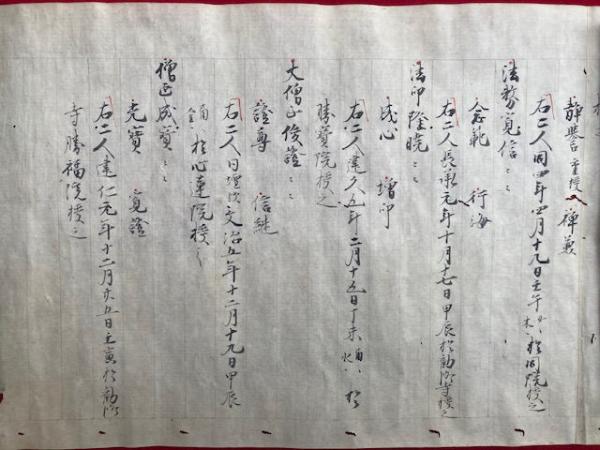 静誉重授 禅兼
右二人同四年四月十九日壬午 於同院授之
法務寛信〻〻
念範 行海
右二人長承元年十月十七日甲辰於勧修寺授之
法印隆暁〻〻
成心 増印
右二人建久五年二月十五日丁未 於
勝宝院授之
大僧正俊證〻〻
證尊 信継
右二人 文治五年十二月十九日甲辰
於心蓮院授之
僧正成宝〻〻
光宝 寛證
右二人建仁元年十二月廿五日壬寅於勧修
寺勝福院授之